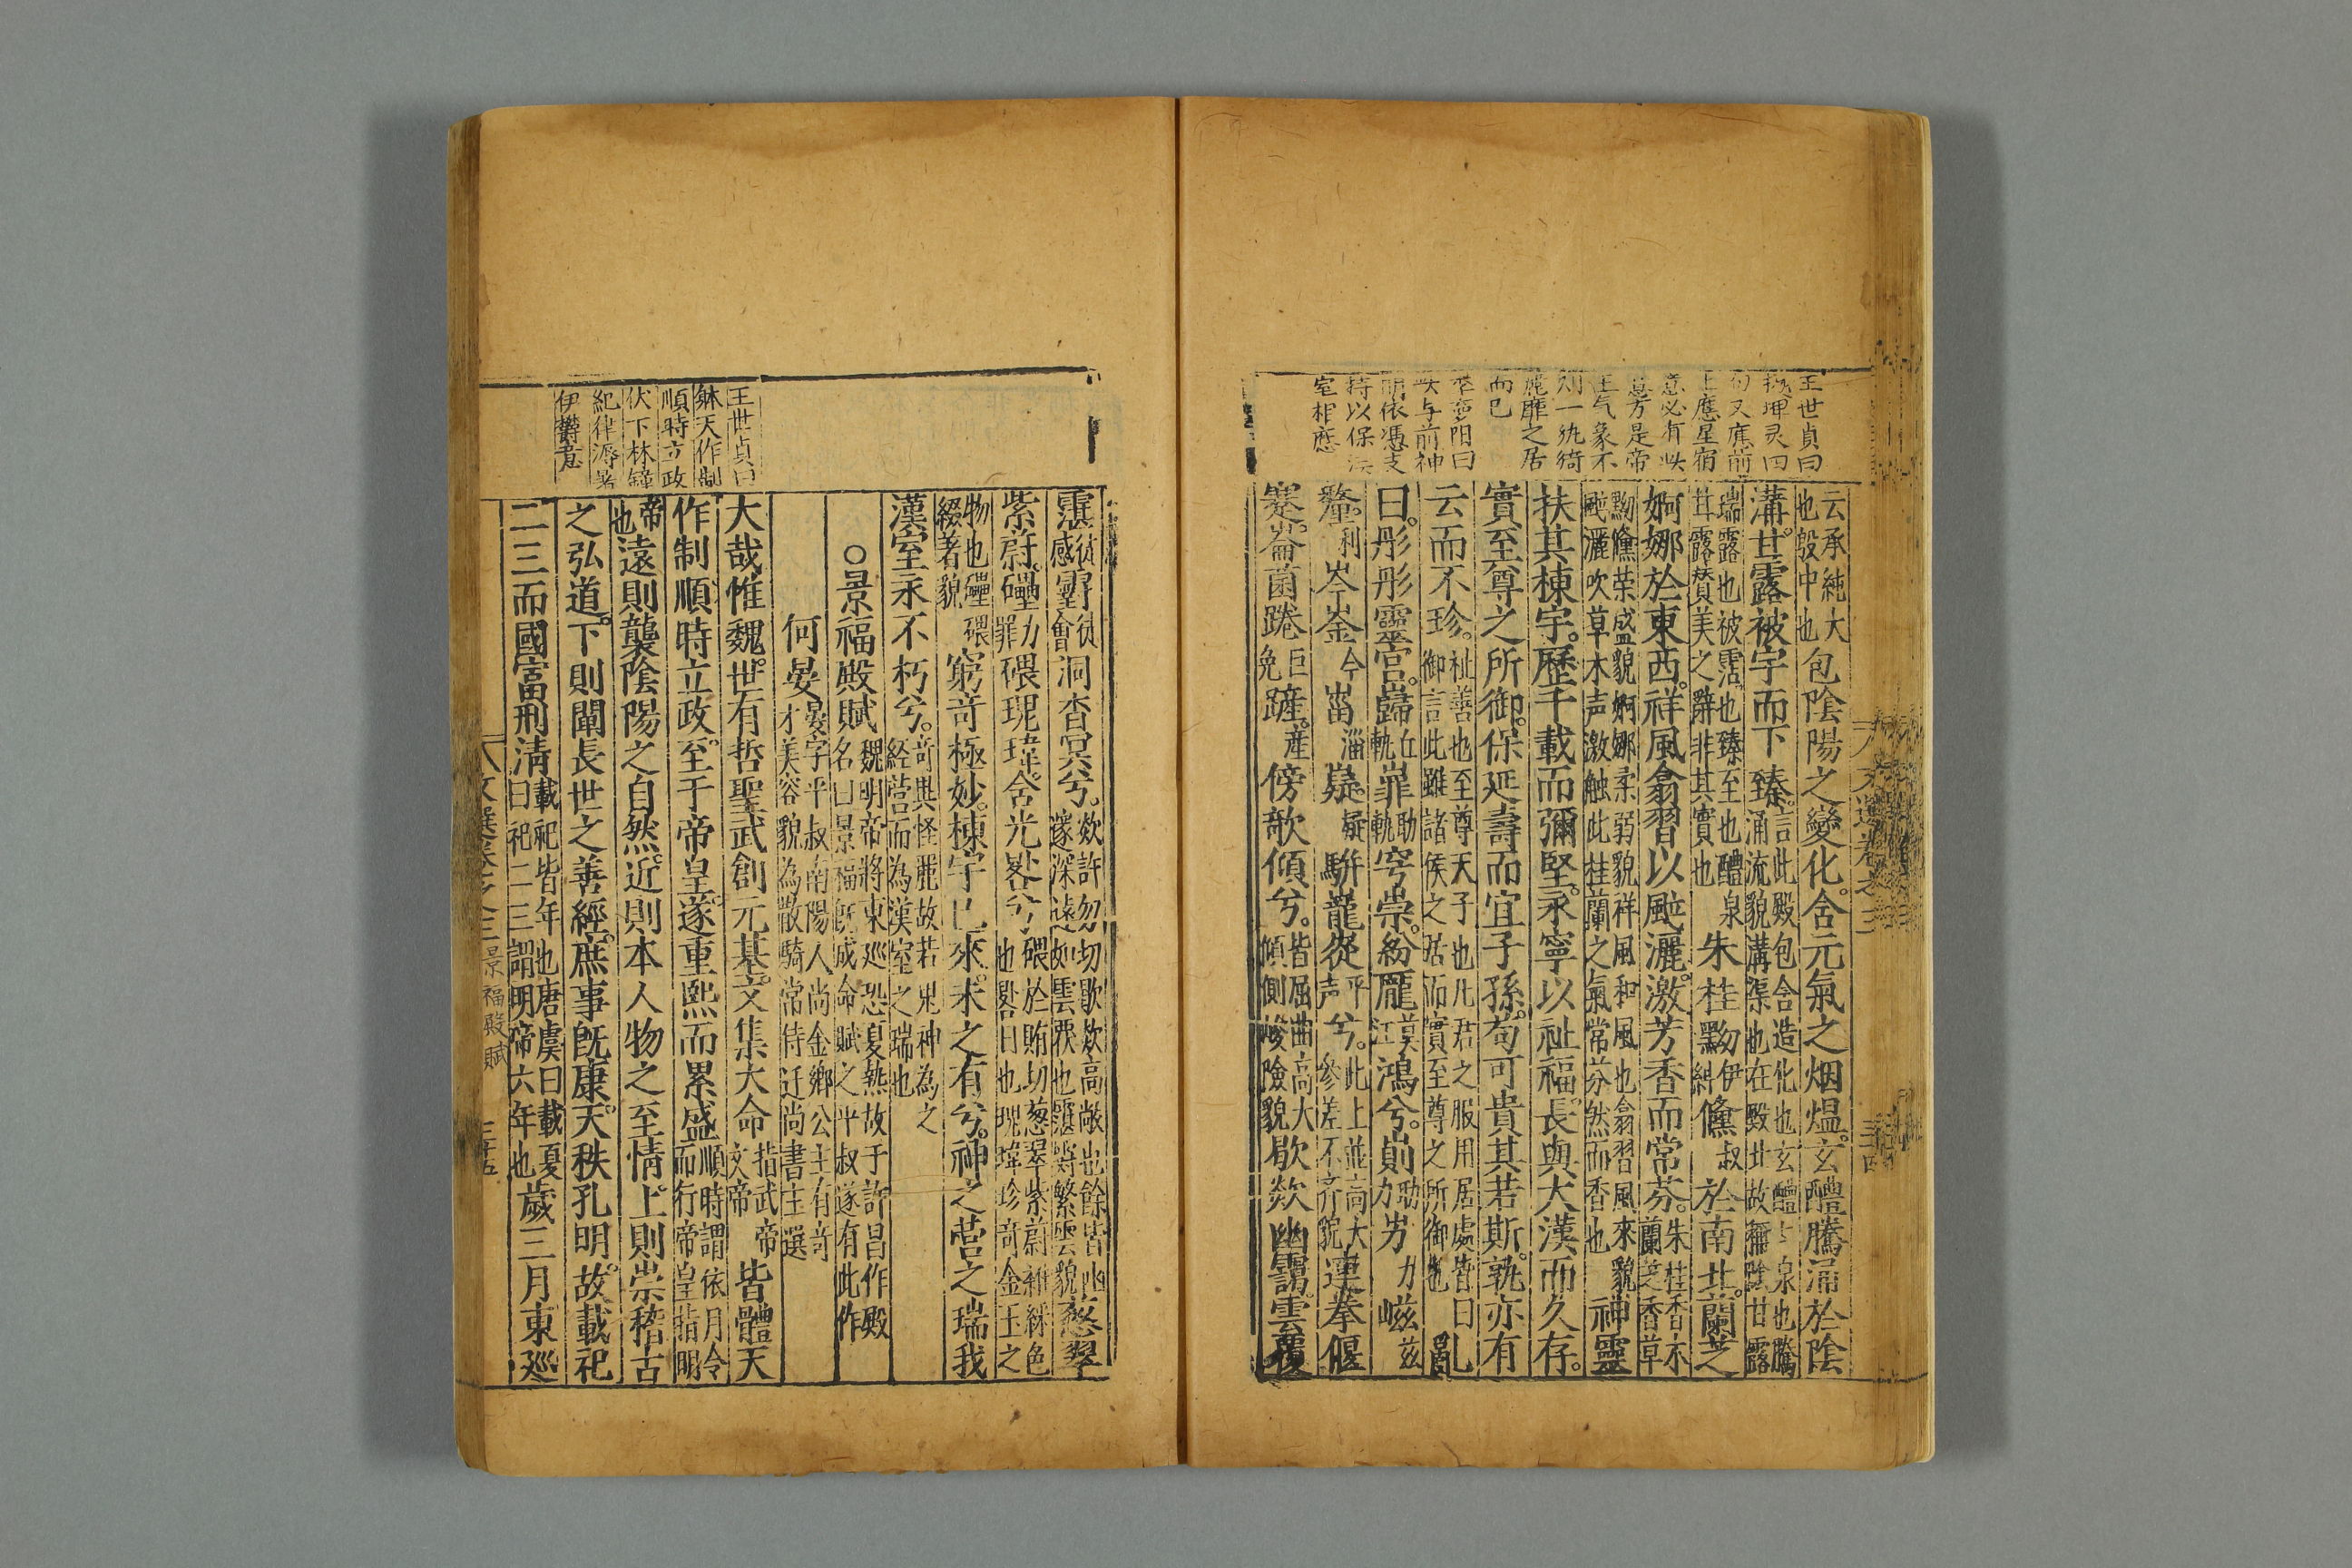 王世貞曰
句又應前
上應星宿
意必有此
意方是帝
王气象不
則一㐫綺
靡靡之居
而已
此与前神
明依憑支
持以保漢
室相應
云承純大
也殷中也
包陰陽之變化。含元氣之烟熅。玄醴騰涌於陰
溝。甘露被宇而下臻。
言此殿包含造化也玄醴
泉也騰
涌流貌溝渠也在殿北故稱陰甘露
瑞露也被霑也臻至也醴泉
甘露賛美之辭非其實也
朱桂黝
伊
糾
儵
叔
於南北。蘭芝
婀娜於東西。祥風翕習以颭灑。激芳香而常芬。
朱桂香木
蘭芝香草
黝儵荣盛貌婀娜柔弱貌祥風和風也翕習風來貌
颭灑吹草木声激触此桂蘭之氣常芬然而香也
神靈
扶其棟宇。歷千載而彌堅。永寧以祉福。長與大漢而久存。
實至尊之所御。保延壽而宜子孫。苟可貴其若斯。孰亦有
云而不珍。
祉善也至尊天子也凡君之服用居處皆曰
御言此雖諸侯之居而實至尊之所御也
亂
曰。彤彤靈宮。巋
丘
軌
辠
助
軌
穹崇。紛厖
莫
江
鴻兮。崱
助
力
屴
力
嵫
兹
嶷。
岑崟
今
崰
淄
嶷。
疑
駢巃嵸
平
声
兮。
此上並高大
參差不齐貌
連拳偃
蹇。崙菌踡
巨
免
嵼。
産
傍欹傾兮。
皆屈曲高大
傾側峻險貌
歇欻幽靄。雲覆
三四
王世貞曰
體天作制
順時立政
伏下林鐘
紀律溽暑
伊鬱意
霮
徒
感
䨴
徒
會
洞杳冥兮。
欻許勿切歇欻高敞也餘皆幽
邃深遠如雲覆也霮䨴繁雲貌
葱翠
紫蔚。礧
力
罪
碨瑰瑋。含光晷兮
碨於賄切葱翠紫蔚雜綵色
也晷日也瑰瑋珍奇金玉之
物也礧碨
綴著貌
窮奇極妙。棟宇已來。未之有兮。神之營之瑞我
漢室永不朽兮。
奇與怪麗故若鬼神為之
經營而為漢室之瑞也
○景福殿賦
魏明帝將東巡恐夏熱故于許昌作殿
名曰景福旣成命賦之平叔遂有此作
何晏
晏字平叔南陽人尚金鄉公主有奇
才美容貌為散騎常侍迁尚書主選
大哉惟魏。世世有哲聖武創元基。文集大命
指武帝
文帝
皆體天
作制順時立政。至于帝皇。遂重熙而累盛
順時謂依月令
而行帝皇指明
帝
也
遠則襲陰陽之自然。近則本人物之至情。上則崇稽古
之弘道。下則闡長世之善經。庶事旣康。天秩孔明。故載祀
二三而國富刑清
載祀皆年也唐虞曰載夏
曰祀二三謂明帝六年也
歲三月東巡
文選卷之三
景福殿賦
三十五